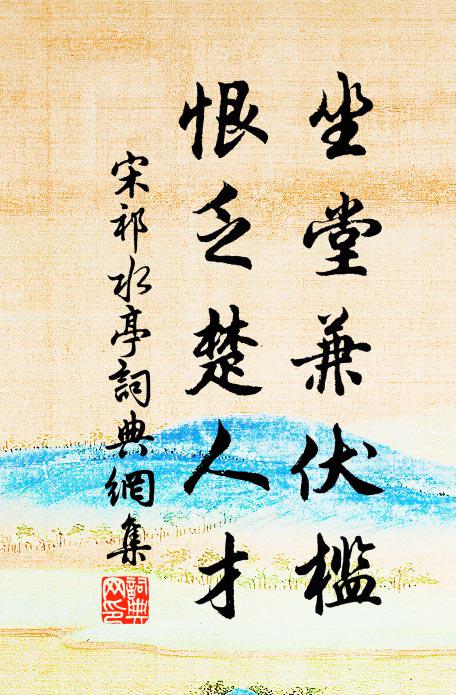 坐堂兼伏檻
恨乏楚人才
宋祁水亭詞典網集